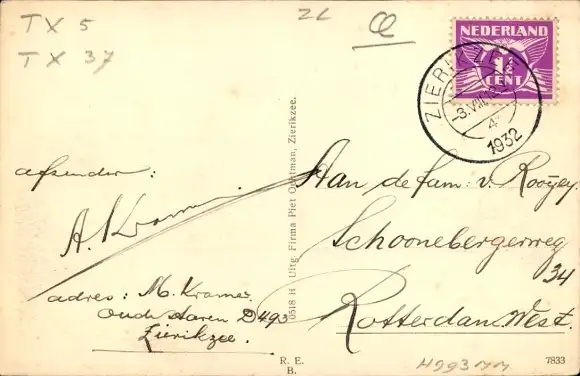 TX 5
TX 37
ZL
NEDERLAND
1½
CENT
ZIERIKZEE
3.VIII
4
1932
afzender:
A. Kramer
adres: M. Kramer
Oude Haven D493
Zierikzee.
10518 H Uitg. Firma Piet Ochtman, Zierikzee.
Aan de fam: v. Rooyey.
Schoonebergerweg
34
Rotterdam. West.
R. E.
B.
7833